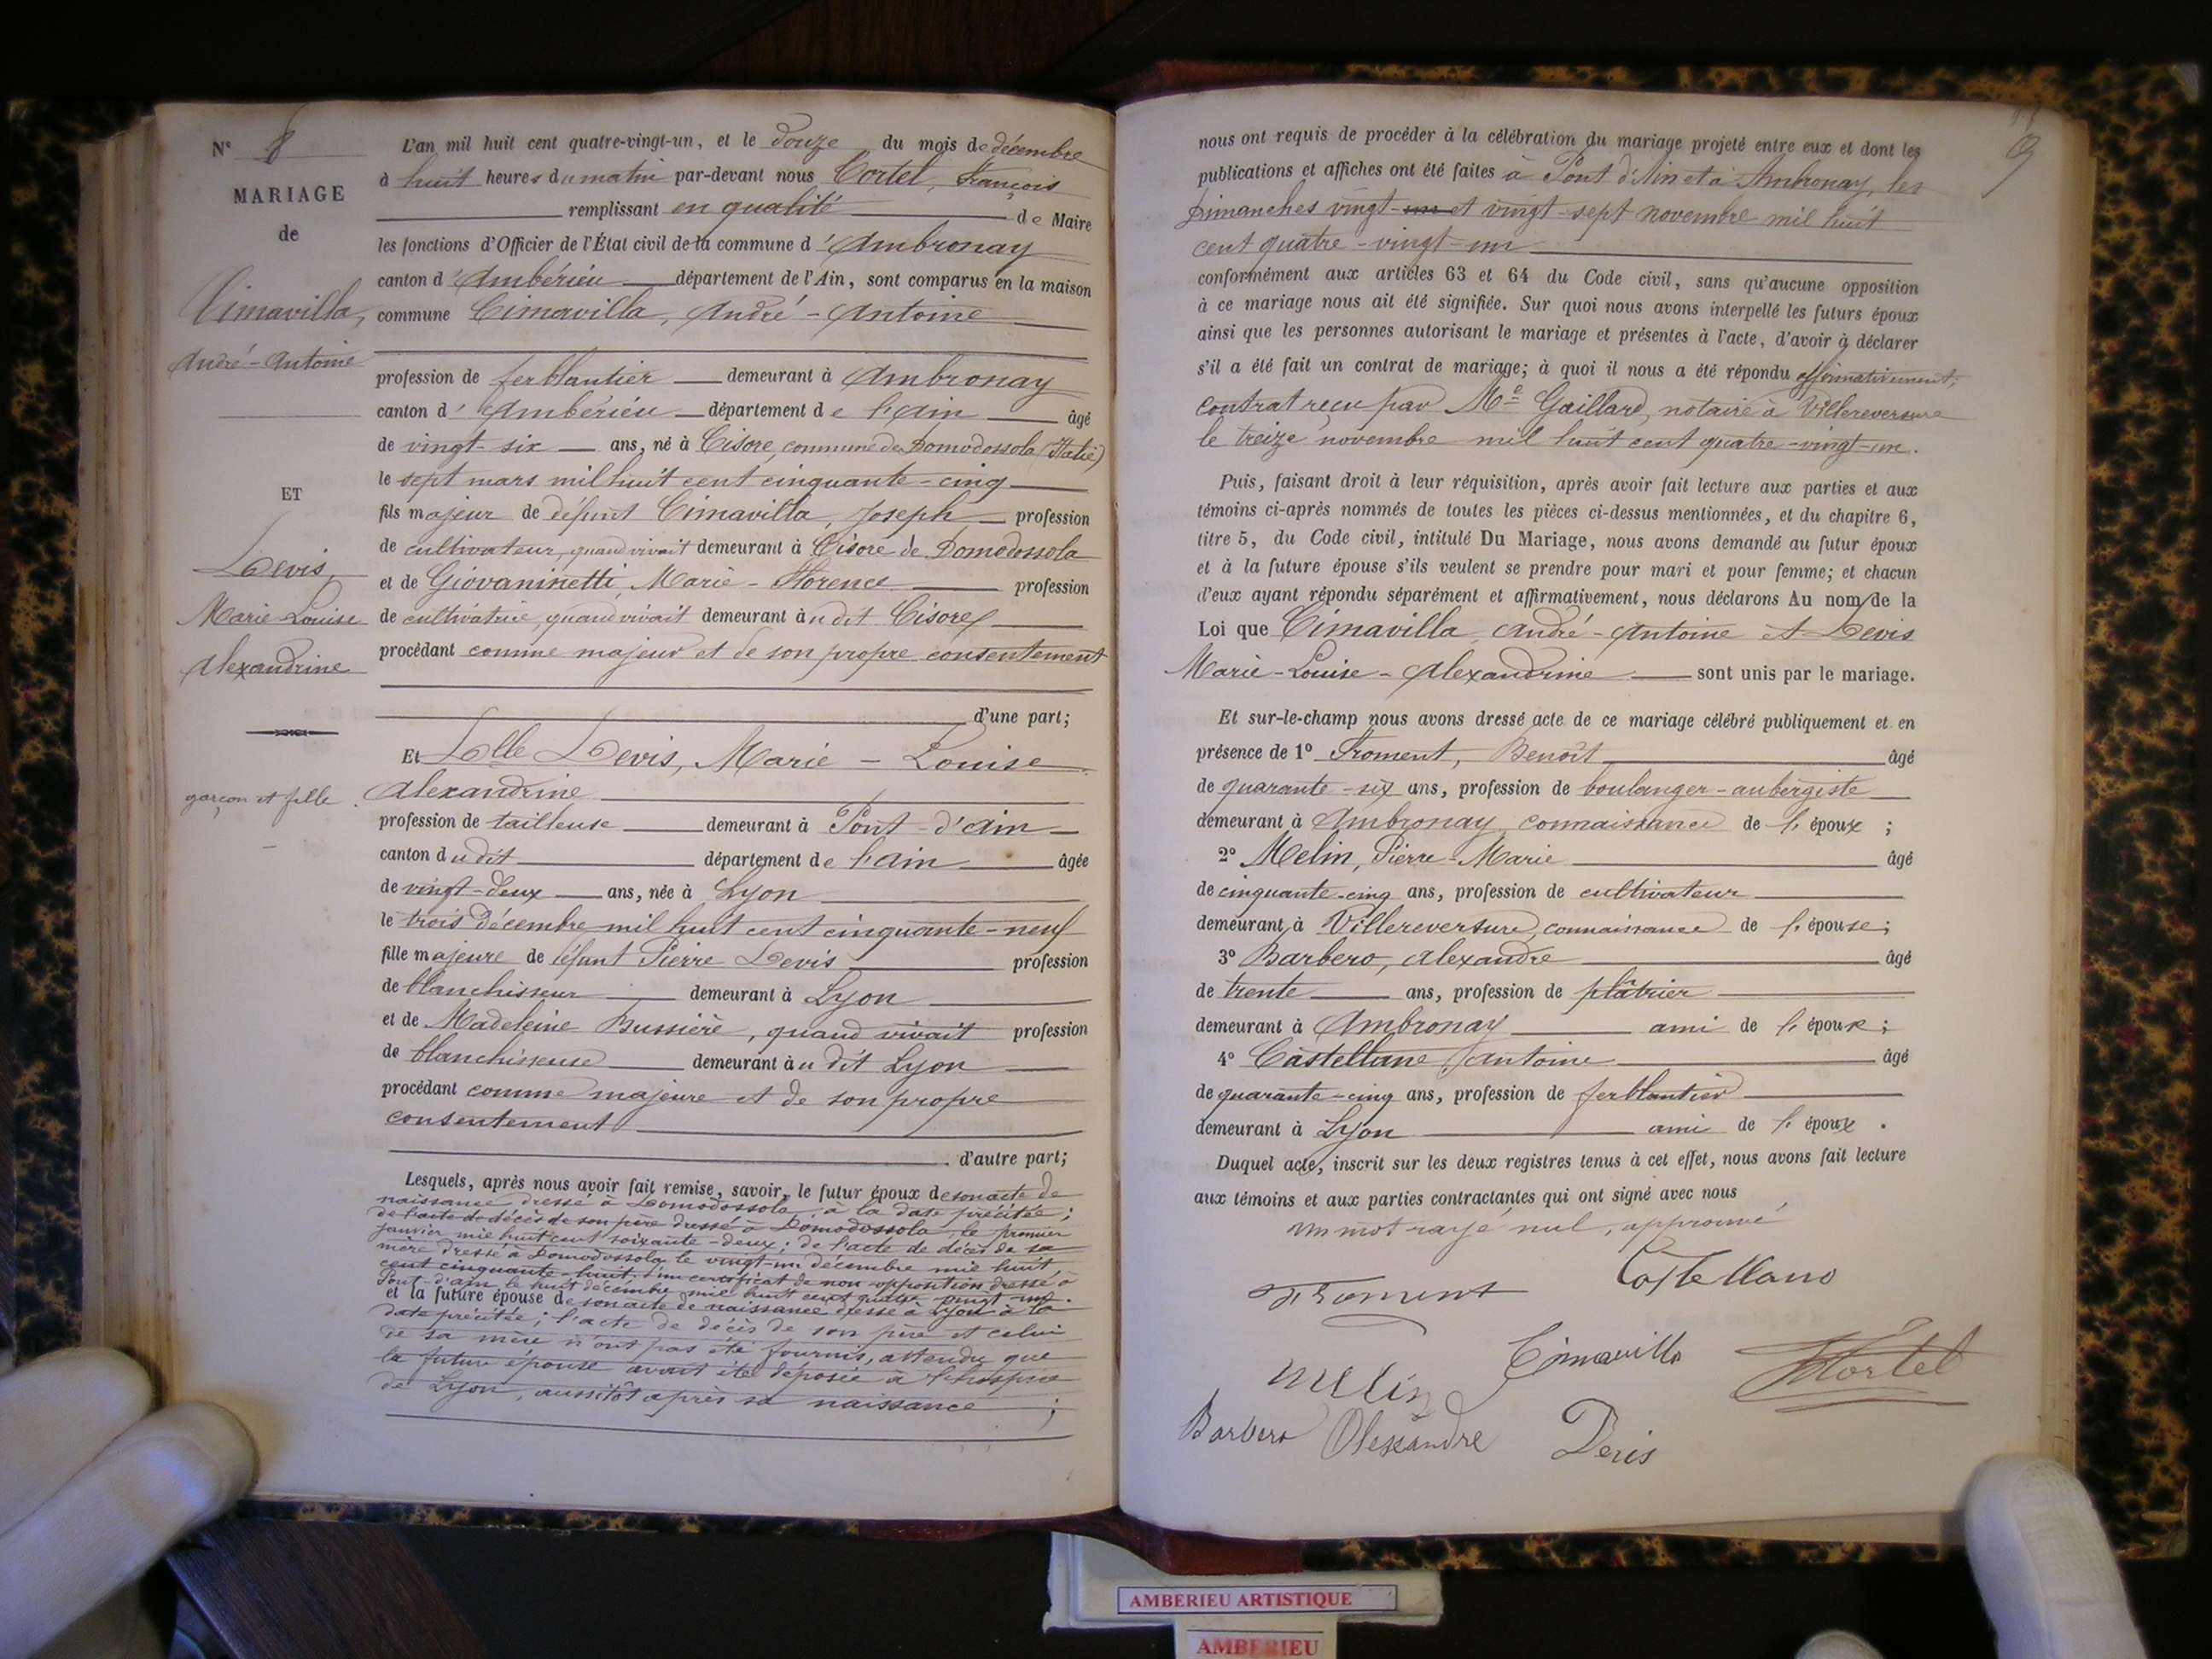 N° 8
MARIAGE
de
Cimavilla,
André-Antoine
ET
Devis,
Marie Louise
Alexandrine
garçon et fille
L'an mil huit cent quatre-vingt-un, et le Douze du mois de décembre
à huit heures du matin par-devant nous Cortel, François
remplissant en qualité de Maire
les fonctions d'Officier de l'État civil de la commune d'Ambronay
canton d'Ambérieu département de l'Ain, sont comparus en la maison
commune Cimavilla, André-Antoine
profession de ferblantier demeurant à Ambronay
canton d'Ambérieu département de l'Ain âgé
de vingt-six ans, né à Cisore, commune de Domodossola (Italie)
le sept mars mil huit cent cinquante-cinq
fils majeur de défunt Cimavilla, Joseph, profession
de cultivateur, quand vivait demeurant à Cisore de Domodossola
et de Giovaninetti, Marie-Florence profession
de cultivatrice, quand vivait demeurant àudit Cisore
procédant comme majeur et de son propre consentement
d'une part;
Et Dlle Devis, Marie-Louise
Alexandrine
profession de tailleuse demeurant à Pont-d'Ain
canton dudit département de l'Ain âgée
de vingt-deux ans, née à Lyon
le trois Décembre mil huit cent cinquante-neuf
fille majeure de défunt Pierre Devis profession
de blanchisseur demeurant à Lyon
et de Madeleine Bussière, quand vivait profession
de blanchisseuse demeurant àudit Lyon
procédant comme majeure et de son propre
consentement
d'autre part;
Lesquels, après nous avoir fait remise, savoir, le futur époux de son acte de
naissance dressé à Domodossola, à la date précitée;
de l'acte de décès de son père dressé à Domodossola, le premier
janvier mil huit cent soixante-deux; de l'acte de décès de sa
mère dressé à Domodossola le vingt-un décembre mil huit
cent cinquante-huit; d'un certificat de non-opposition dressé à
Pont-d'Ain le huit décembre mil huit cent quatre-vingt-un.
et la future épouse de son acte de naissance dressé à Lyon à la
date précitée; l'acte de décès de son père et celui
de sa mère n'ont pas été fournis, attendu que
la future épouse avait été déposée à l'hospice
de Lyon, aussitôt après sa naissance;
9
nous ont requis de procéder à la célébration du mariage projeté entre eux et dont les
publications et affiches ont été faites à Pont d'Ain et à Ambronay, les
Dimanches vingt-un et vingt-sept novembre mil huit
cent quatre-vingt-un
conformément aux articles 63 et 64 du Code civil, sans qu'aucune opposition
à ce mariage nous ait été signifiée. Sur quoi nous avons interpellé les futurs époux
ainsi que les personnes autorisant le mariage et présentes à l'acte, d'avoir à déclarer
s'il a été fait un contrat de mariage; à quoi il nous a été répondu affirmativement;
contrat reçu par Me Gaillard, notaire à Villereversure
le treize novembre mil huit cent quatre-vingt-un.
Puis, faisant droit à leur réquisition, après avoir fait lecture aux parties et aux
témoins ci-après nommés de toutes les pièces ci-dessus mentionnées, et du chapitre 6,
titre 5, du Code civil, intitulé Du Mariage, nous avons demandé au futur époux
et à la future épouse s'ils veulent se prendre pour mari et pour femme; et chacun
d'eux ayant répondu séparément et affirmativement, nous déclarons Au nom de la
Loi que Cimavilla André-Antoine et Devis
Marie-Louise-Alexandrine sont unis par le mariage.
Et sur-le-champ nous avons dressé acte de ce mariage célébré publiquement et en
présence de 1° Froment, Benoît âgé
de quarante-six ans, profession de boulanger-aubergiste
demeurant à Ambronay connaissance de l'époux;
2° Melin, Pierre-Marie âgé
de cinquante-cinq ans, profession de cultivateur
demeurant à Villereversure, connaissance de l'épouse;
3° Barbero, Alexandre âgé
de trente ans, profession de plâtrier
demeurant à Ambronay ami de l'époux;
4° Castellane, Antoine âgé
de quarante-cinq ans, profession de ferblantier
demeurant à Lyon ami de l'époux.
Duquel acte, inscrit sur les deux registres tenus à cet effet, nous avons fait lecture
aux témoins et aux parties contractantes qui ont signé avec nous
un mot rayé nul, approuvé
Castellano
Froment
Cimavilla
Melin
Cortel
Barbero Olessandre
Devis
AMBERIEU ARTISTIQUE
AMBERIEU